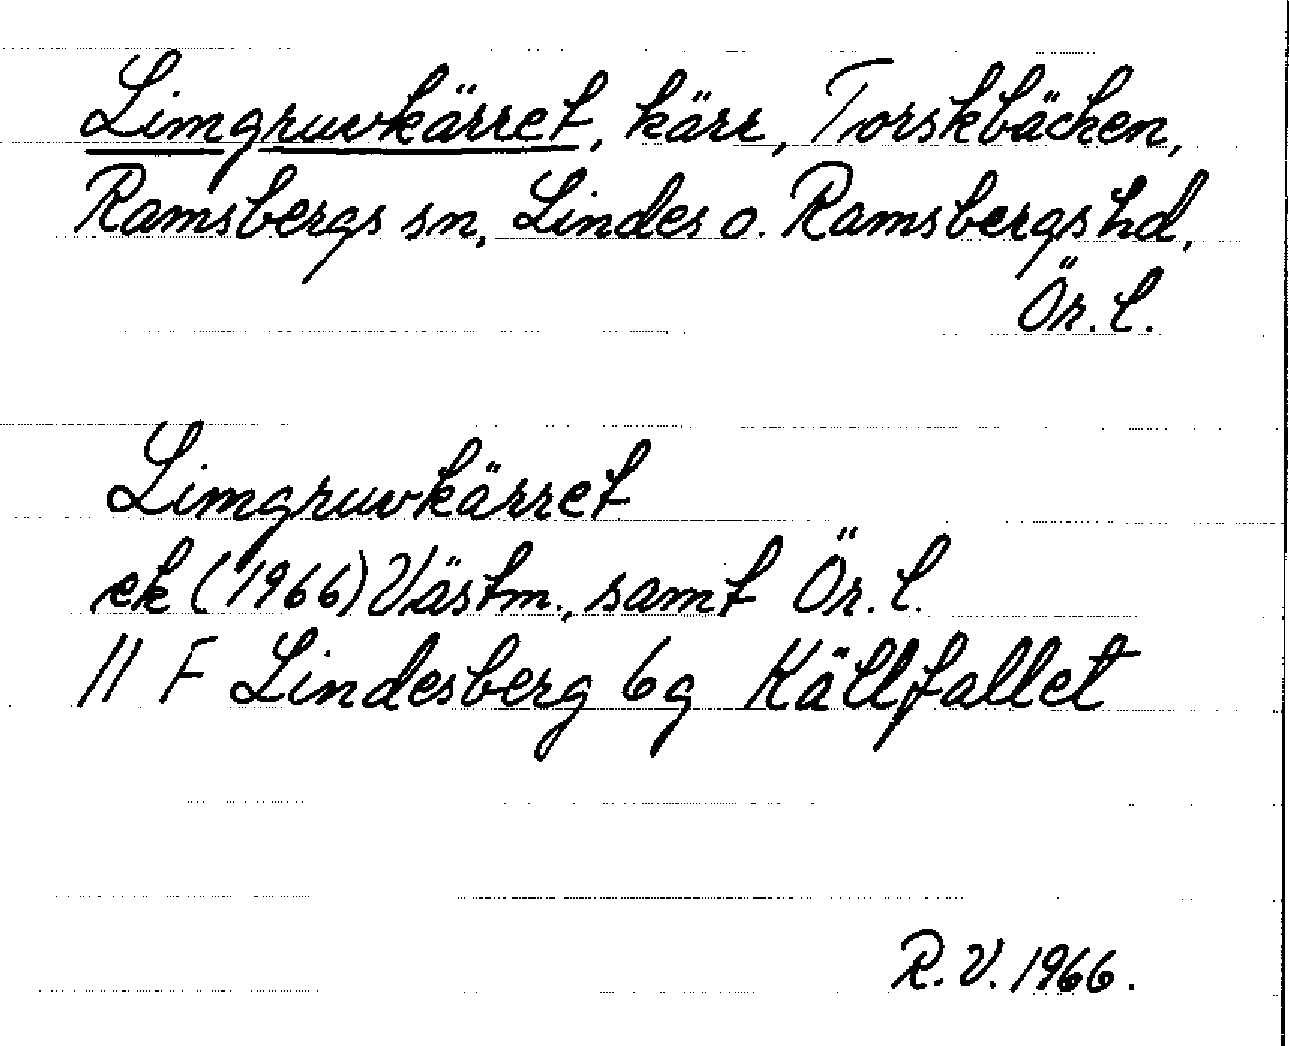 Limgruvkärret, kärr, Torskbäcken,
Ramsbergs sn, Lindes o. Ramsbergs hd,
Ör. l.
Limgruvkärret
ek (1966) Västm., samt Ör. l.
11 F Lindesberg 6g Källfallet
R. V. 1966.